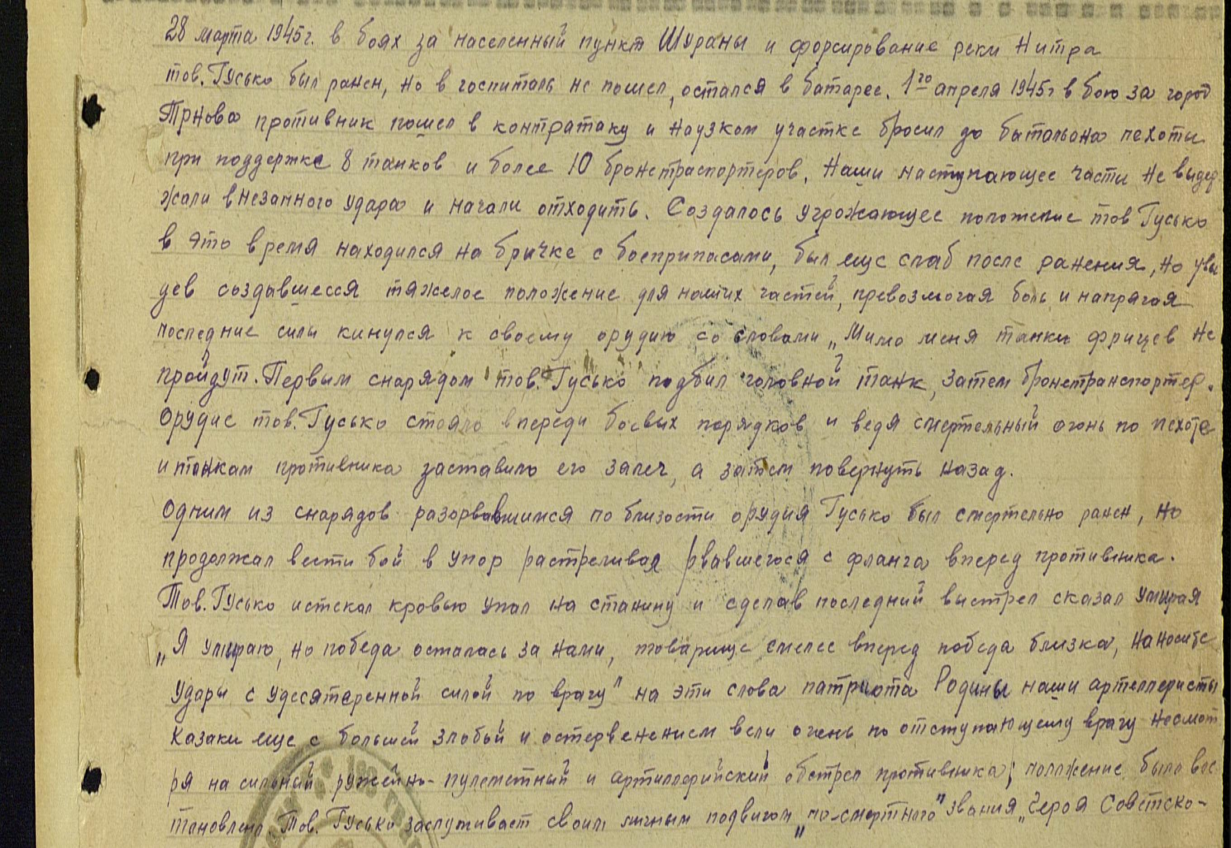 28 марта 1945г. в боях за населенный пункт Шураны и форсирование реки Нитра
тов. Гусько был ранен, но в госпиталь не пошел, остался в батарее. 1го апреля 1945г в бою за город
Трнова противник пошел в контратаку и наузком участке бросил до батальона пехоты
при поддержке 8 танков и более 10 бронетраспортеров. Наши наступающее части не выдер-
жали внезапного удара и начали отходить. Создалось угрожающее положение тов Гусько
в это время находился на бричке с боеприпасами, был еще слаб после ранения, но уви-
дев создавшееся тяжелое положение для наших частей, превозмогая боль и напрягая
последние силы кинулся к своему орудию со словами „Мимо меня танки фрицев не
пройдут. Первым снарядом тов. Гусько подбил головной танк, затем бронетранспортер.
Орудие тов. Гусько стояло впереди боевых порядков и ведя смертельный огонь по пехоте
и танкам противника заставило его залеч, а затем повернуть назад.
Одним из снарядов разорвавшимся по близости орудия Гусько был смертельно ранен, но
продолжал вести бой в упор растреливая рвавшегося с фланга вперед противника.
Тов. Гусько истекая кровью упал на станину и сделав последний выстрел сказал умирая
„Я умираю, но победа осталась за нами, товарище смелее вперед победа близка, наносите
удары с удесятеренной силой по врагу" на эти слова патриота Родины наши артеллеристы
Казаки еще с большей злобой и остервенением вели огень по отступающему врагу несмот
ря на сильный ружейно-пулеметный и артиллерийский обстрел противника; положение было вос
тановлено. Тов. Гусько заслуживает своим личным подвигом „посмертного" звания „Героя Советско-